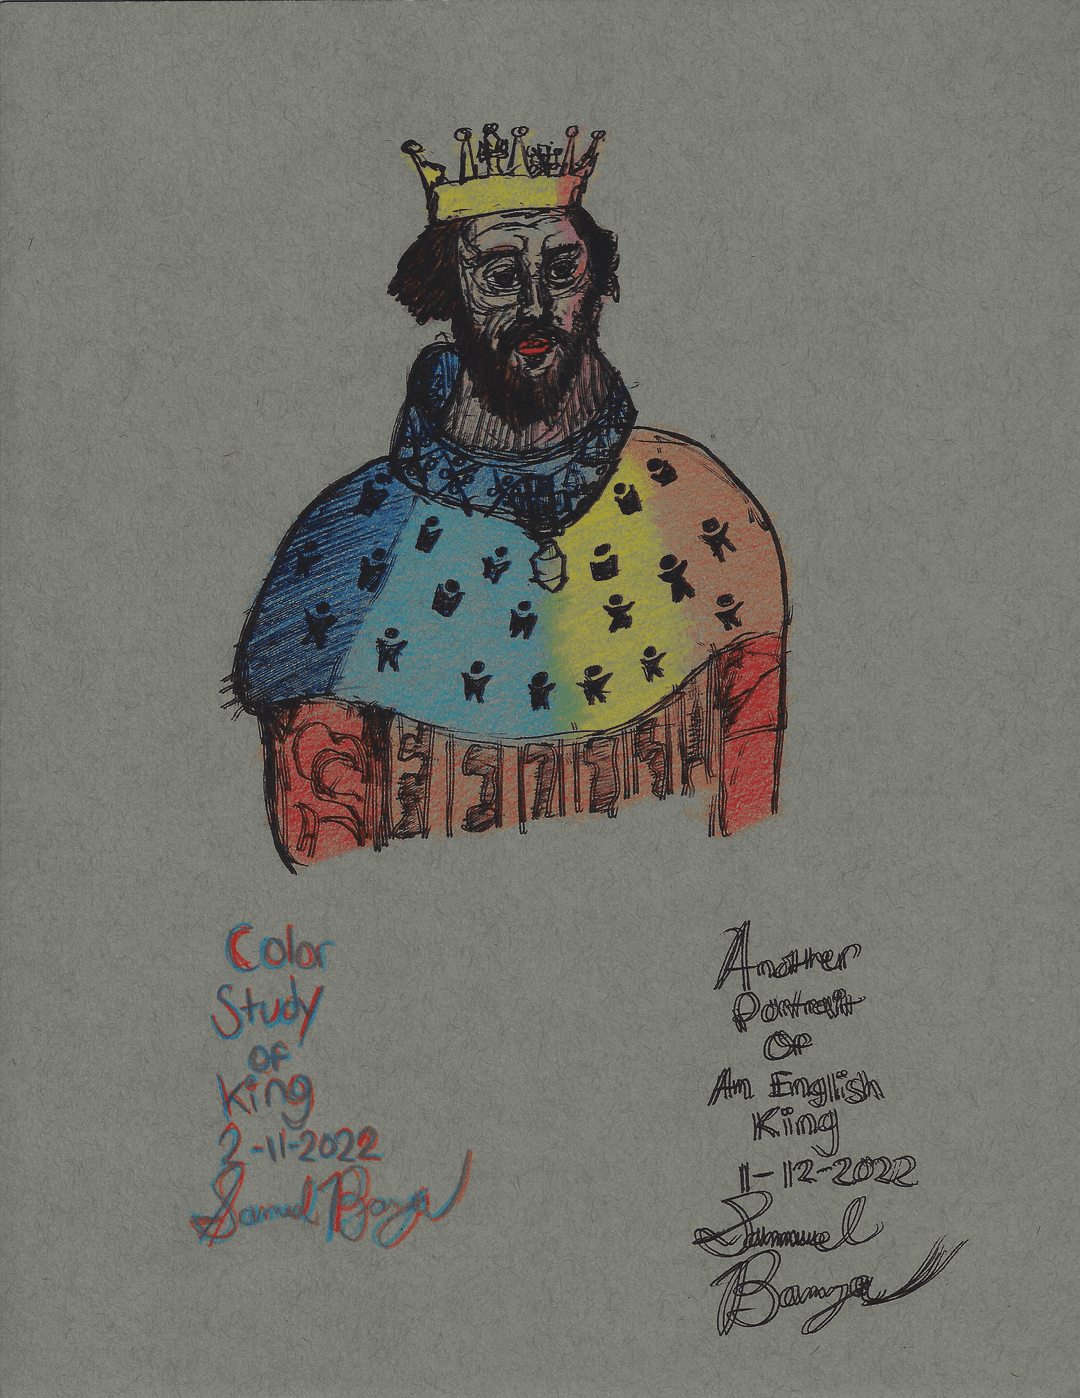 Color
Study
of
King
2-11-2022
Samuel Banza
Another
Portrait
Of
An English
King
11-12-2022
Samuel
Banza